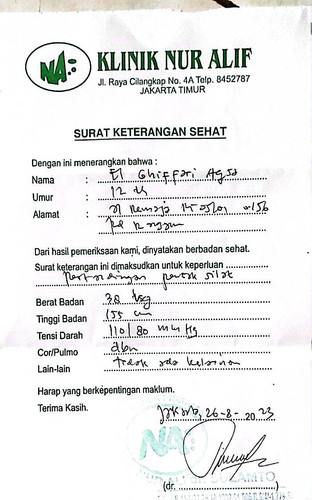 NA
KLINIK NUR ALIF
Jl. Raya Cilangkap No. 4A Telp. 8452787
JAKARTA TIMUR
SURAT KETERANGAN SEHAT
Dengan ini menerangkan bahwa :
Nama : El Ghiffari
Umur : 12 th
Alamat :
Dari hasil pemeriksaan kami, dinyatakan berbadan sehat.
Surat keterangan ini dimaksudkan untuk keperluan
Pertandingan pencak silat
Berat Badan : 38 kg
Tinggi Badan : 155 cm
Tensi Darah : 110/80 mmHg
Cor/Pulmo : dbn
Lain-lain : tidak ada kelainan
Harap yang berkepentingan maklum.
Terima Kasih. Jakarta, 26-8-2023
(dr.